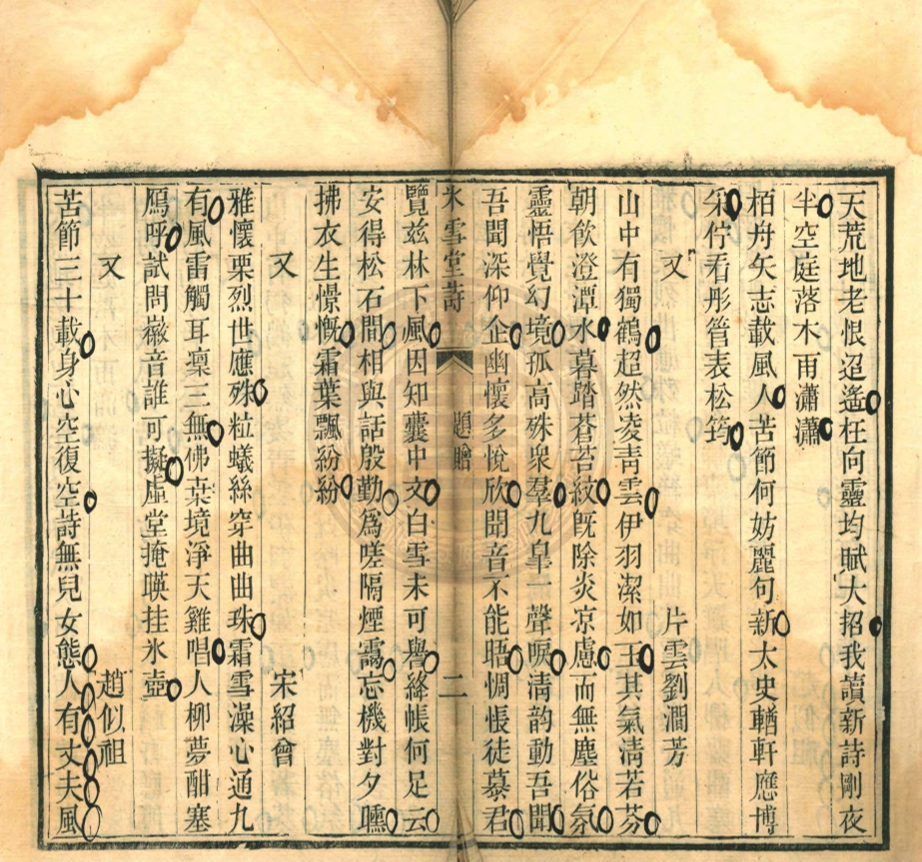 天荒地老恨迢遙枉向靈均賦大招我讀新詩剛夜
半空庭落木雨瀟瀟
栢舟矢志載風人苦節何妨麗句新太史輶軒應博
采佇看彤管表松筠
又 片雲劉澗芳
山中有獨鶴超然凌青雲伊羽潔如玉其氣淸若芬
朝飲澄潭水暮踏蒼苔紋旣除炎凉慮而無塵俗氛
靈悟覺幻境孤高殊衆羣九臯一聲唳淸韵動吾聞
吾聞深仰企幽懷多悅欣聞音不能晤惆悵徒慕君
冰雪堂詩 題贈 二
覽兹林下風因知囊中文白雪未可譽絳帳何足云
安得松石間相與話殷勤爲嗟隔煙靄忘機對夕曛
拂衣生憬慨霜葉飄紛紛
又 宋紹會
雅懷栗烈世應殊粒蟻絲穿曲曲珠霜雪澡心通九
有風雷觸耳稟三無佛桒境淨天雞唱人柳夢酣塞
鴈呼試問徽音誰可擬虛堂掩暎挂氷壺
又 趙似祖
苦節三十載身心空復空詩無兒女態人有丈夫風